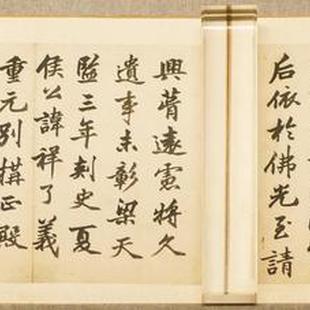 后依於佛光至請
興膂遠憲將久
遺事未彰梁天
監三年刺史夏
侯公諱祥了義
重元别構正殿